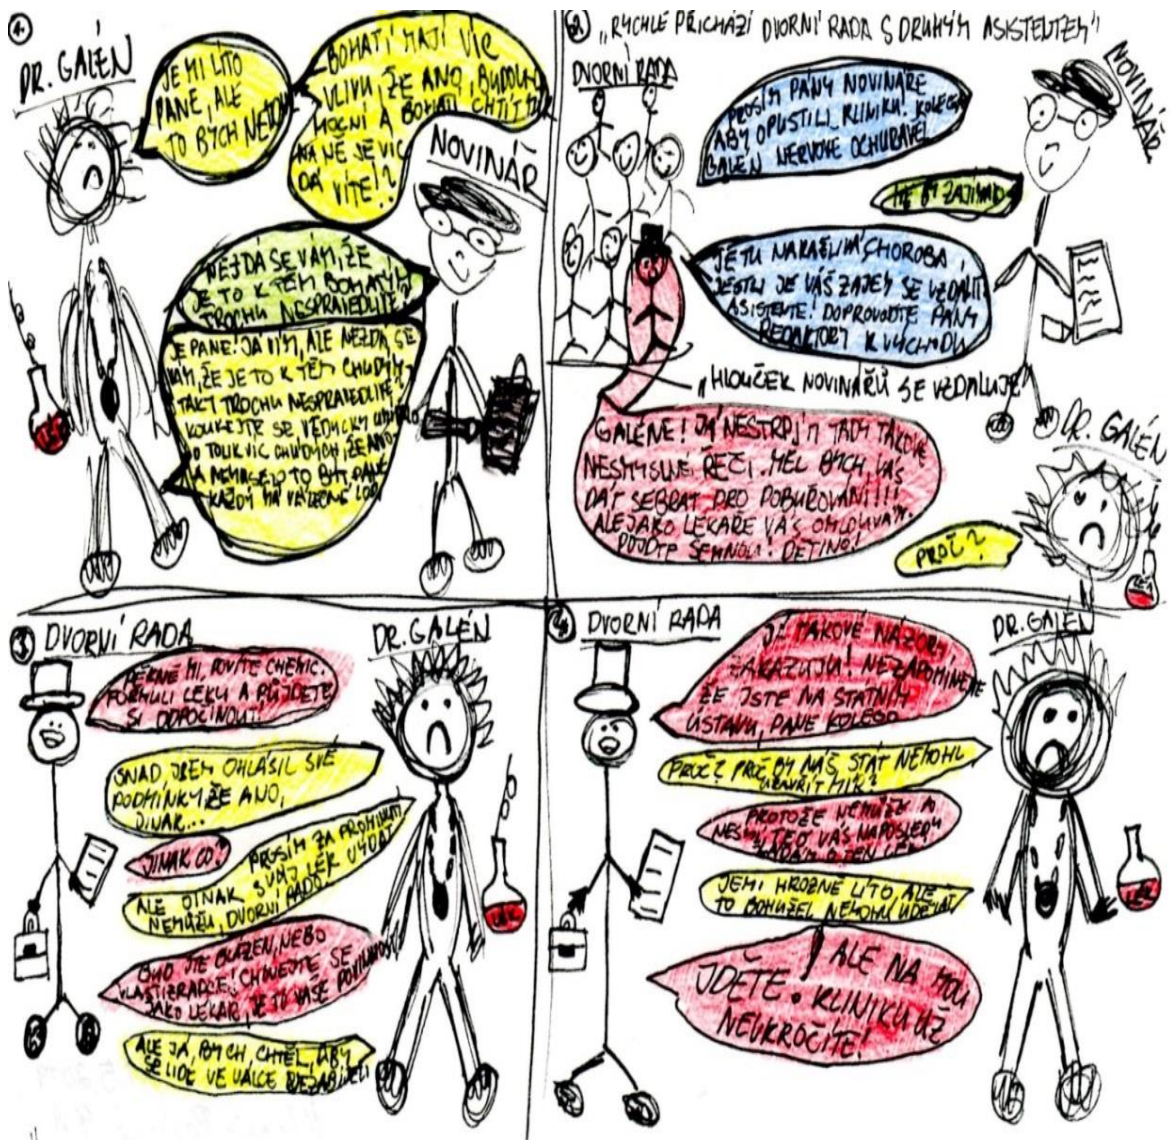 1.
DR. GALÉN
JE MI LÍTO
PANE, ALE
TO BYCH
BOHATÍ MAJÍ VÍC
VLIVU, ŽE ANO, BUDOU-LI
MOCNÍ A BOHATÍ CHTÍT MÍR
NA NĚ SE VÍC
DÁ
VÍTE!?
NOVINÁŘ
NEJDÁ SE VÁM, ŽE
JE TO K TĚM BOHATÝM
TROCHU NESPRAVEDLIVÉ?
JE PANE! JÁ VÍM, ALE NEZDÁ SE
VÁM, ŽE JE TO K TĚM CHUDÝM
TAKY TROCHU NESPRAVEDLIVÉ?
KOUKEJTE SE VĚDYCKY
O TOLIK VÍC CHUDÝCH, ŽE ANO
A NEMUSELO TO BÝT, PANE
KAŽDÝ MÁ
2. „RYCHLE PŘICHÁZÍ DVORNÍ RADA S DRUHÝM ASISTENTEM"
DVORNÍ RADA
NOVINÁŘ
PROSÍM PÁNY NOVINÁŘE
ABY OPUSTILI KLINIKU. KOLEGA
GALÉN NERVOVĚ OCHURAVĚL
ZAJÍMALO
JE TU NAKAŽLIVÁ CHOROBA
JESTLI JE VÁŠ ZÁJEM SE VZDÁLIT.
ASISTENTE! DOPROVOĎTE PÁNY
REDAKTORY K VÝCHODU
„HLOUČEK NOVINÁŘŮ SE VZDALUJE"
GALÉNE! JÁ NESTRPÍM TADY TAKOVÉ
NESMYSLNÉ ŘEČI. MĚL BYCH VÁS
DÁT SEBRAT PRO POBUŘOVÁNÍ!!!
ALE JAKO LÉKAŘE VÁS OMLOUVÁM.
POJĎTE SEMNOU! DĚTINO!
DR. GALÉN
PROČ?
3. DVORNÍ RADA
DR. GALÉN
PĚKNĚ MI, POVÍTE CHEMIC.
FORMULI LÉKU A PŮJDETE
SI ODPOČINOUT.
SNAD, JSEM OHLÁSIL SVÉ
PODMÍNKY ŽE ANO,
JINAK...
JINAK CO?
PROSÍM ZA PROMINUTÍ
ALE JINAK SVŮJ LÉK VYDAT
NEMŮŽU, DVORNÍ RADO!
BUĎ JSTE BLÁZEN, NEBO
VLASTIZRÁDCE! CHOVEJTE SE
JAKO LÉKAŘ, JE TO VAŠE POVINNOST
ALE JÁ, BYCH, CHTĚL, ABY
SE LIDÉ VE VÁLCE NEZABÍJELI
LÉK
4. DVORNÍ RADA
DR. GALÉN
JÁ TAKOVÉ NÁZORY
ZAKAZUJU! NEZAPOMÍNEJTE
ŽE JSTE NA STÁTNÍM
ÚSTAVU, PANE KOLEGO
PROČ? PROČ BY NÁŠ STÁT NEMOHL
UZAVŘÍT MÍR?
PROTOŽE NEMŮŽE A
NESMÍ, TEĎ VÁS NAPOSLEDY
ŽÁDÁM O TEN LÉK
JE MI HROZNĚ LÍTO ALE
TO BOHUŽEL NEMOHU UDĚLAT
JDĚTE! ALE NA MOU
KLINIKU UŽ
NEVKROČÍTE!
LÉK